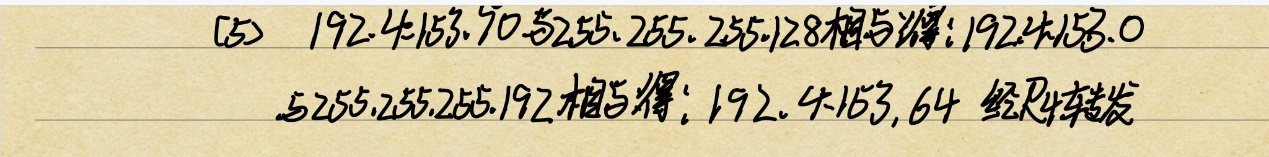 (5) 192.4.153.90与255.255.255.128相与得:192.4.153.0
与255.255.255.192相与得:192.4.153.64 经R4转发